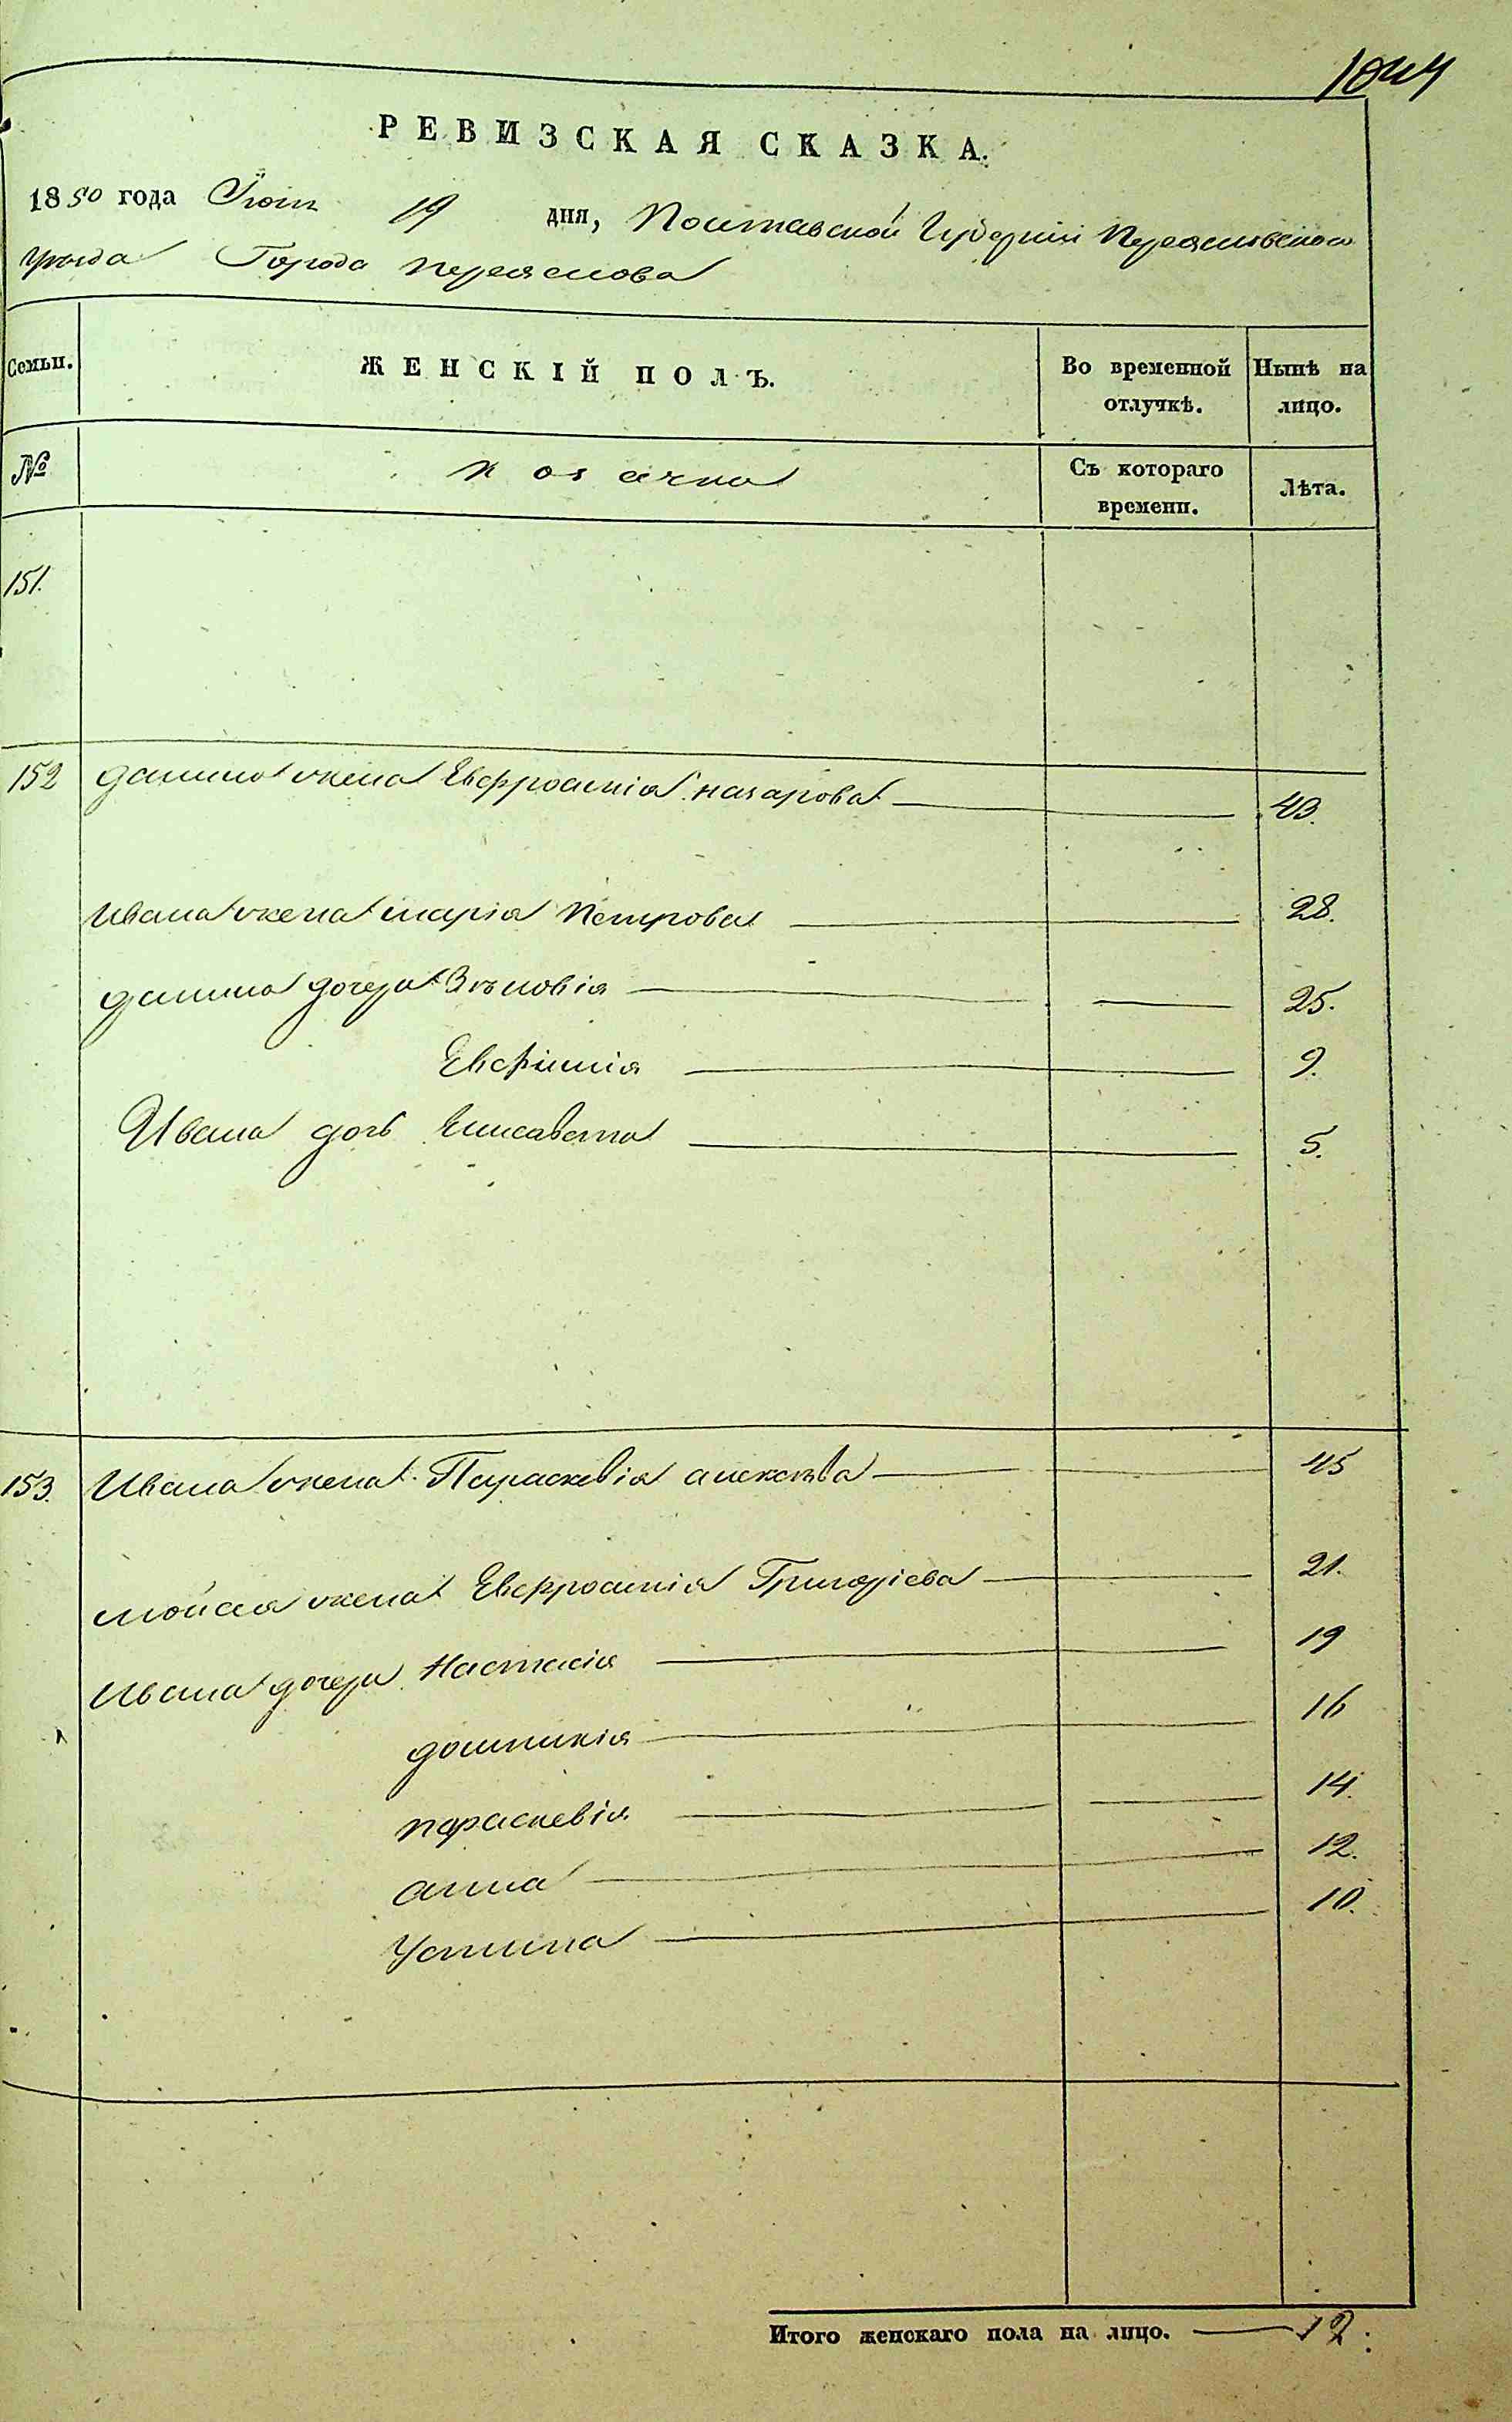 1044
РЕВИЗСКАЯ СКАЗКА.
1850 года Июня 19 дня, Полтавской Губерніи Переяславского
уезда Города Переяслова
Семьи. ЖЕНСКІЙ ПОЛЪ. Во временной отлучкѣ. Нынѣ на лицо.
№ козачка Съ котораго времени. Лѣта.
151.
152 Данила жена Евфросинія Назарова 43.
Ивана жена Марія Петрова 28.
Данила дочери Зѣновія 25.
Евфимія 9.
Ивана дочь Елисавета 5.
153. Ивана жена Параскевія Алексѣва 45
Мойсея жена Евфросинія Григоріева 21.
Ивана дочери Настасія 19
Домникія 16
Параскевія 14.
Анна 12.
Устина 10.
Итого женскаго пола на лицо. 12.